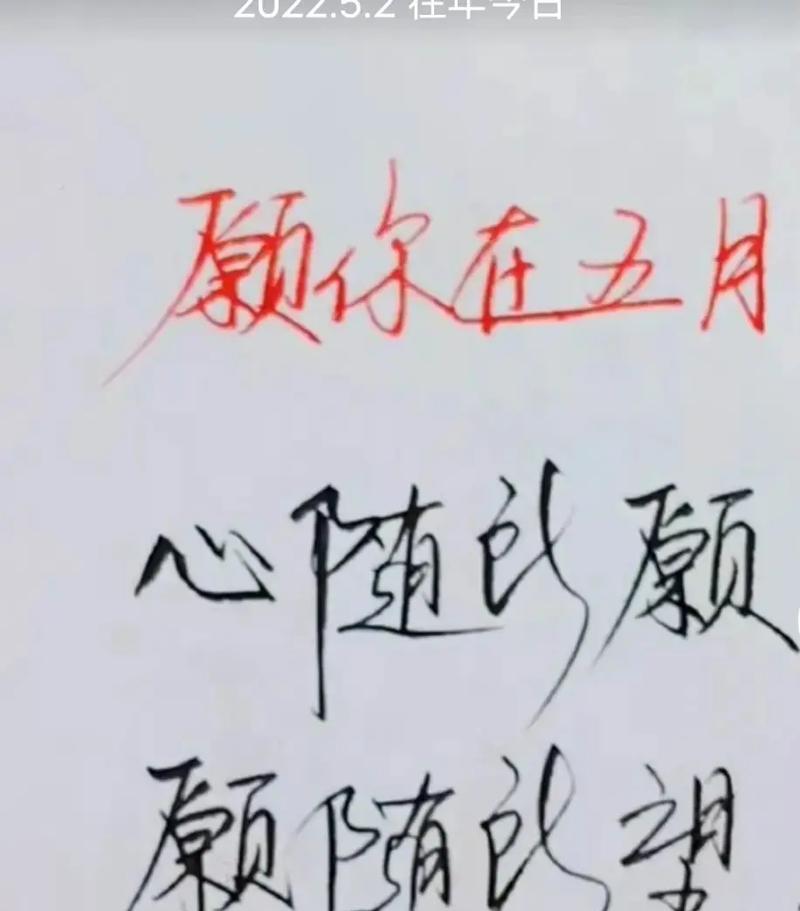 2022.5.2 往年今日
愿你在五月
心随所愿
愿随所望